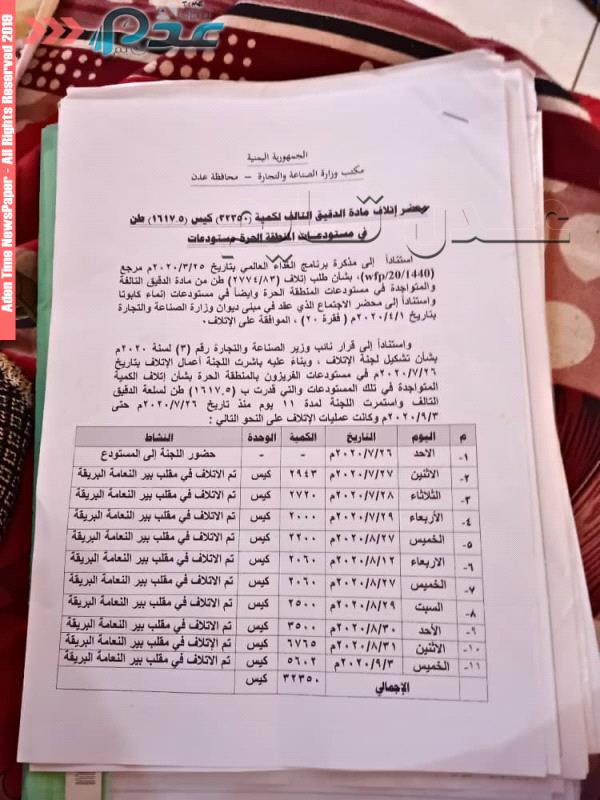 Aden Time NewsPaper - All Rights Reserved 2019
عدن تايم
الجمهورية اليمنية
مكتب وزارة الصناعة والتجارة – محافظة عدن
محضر إتلاف مادة الدقيق التالف لكمية (٣٢٣٥٠) كيس (١٦١٧.٥) طن
في مستودعات المنطقة الحرة مستودعات
استناداً إلى مذكرة برنامج الغذاء العالمي بتاريخ ٢٠٢٠/٣/٢٥م مرجع
(wfp/20/1440)، بشأن طلب إتلاف (٢٧٧٤/٨٣) طن من مادة الدقيق التالفة
والمتواجدة في مستودعات المنطقة الحرة وايضاً في مستودعات إنماء كابوتا
واستناداً إلى محضر الاجتماع الذي عقد في مبنى ديوان وزارة الصناعة والتجارة
بتاريخ ٢٠٢٠/٤/١م ( فقرة ٢٠ ) ، الموافقة على الإتلاف.
واستناداً إلى قرار نائب وزير الصناعة والتجارة رقم (٣) لسنة ٢٠٢٠م
بشأن تشكيل لجنة الإتلاف ، وبناءً عليه باشرت اللجنة أعمال الإتلاف بتاريخ
٢٠٢٠/٧/٢٦م في مستودعات الفريزون بالمنطقة الحرة بشأن إتلاف الكمية
المتواجدة في تلك المستودعات والتي قدرت ب (١٦١٧.٥) طن لسلعة الدقيق
التالف واستمرت اللجنة لمدة ١١ يوم منذ تاريخ ٢٠٢٠/٧/٢٦م حتى
٢٠٢٠/٩/٣م وكانت عمليات الإتلاف على النحو التالي :
م اليوم التاريخ الكمية الوحدة النشاط
١- الاحد ٢٠٢٠/٧/٢٦م - - حضور اللجنة إلى المستودع
٢- الاثنين ٢٠٢٠/٧/٢٧م ٢٩٤٣ كيس تم الاتلاف في مقلب بير النعامة البريقة
٣- الثلاثاء ٢٠٢٠/٧/٢٨م ٢٧٢٠ كيس تم الاتلاف في مقلب بير النعامة البريقة
٤- الأربعاء ٢٠٢٠/٧/٢٩م ٢٠٠٠ كيس تم الاتلاف في مقلب بير النعامة البريقة
٥- الخميس ٢٠٢٠/٨/٢٧م ٢٢٠٠ كيس تم الاتلاف في مقلب بير النعامة البريقة
٦- الاربعاء ٢٠٢٠/٨/١٢م ٢٠٦٠ كيس تم الاتلاف في مقلب بير النعامة البريقة
٧- الخميس ٢٠٢٠/٨/٢٧م ٢٠٦٠ كيس تم الاتلاف في مقلب بير النعامة البريقة
٨- السبت ٢٠٢٠/٨/٢٩م ٢٥٠٠ كيس تم الاتلاف في مقلب بير النعامة البريقة
٩- الأحد ٢٠٢٠/٨/٣٠م ٣٥٠٠ كيس تم الاتلاف في مقلب بير النعامة البريقة
١٠- الاثنين ٢٠٢٠/٨/٣١م ٦٧٦٥ كيس تم الإتلاف في مقلب بير النعامة البريقة
١١- الخميس ٢٠٢٠/٩/٣م ٥٦٠٢ كيس تم الاتلاف في مقلب بير النعامة البريقة
الإجمالي ٣٢٣٥٠ كيس